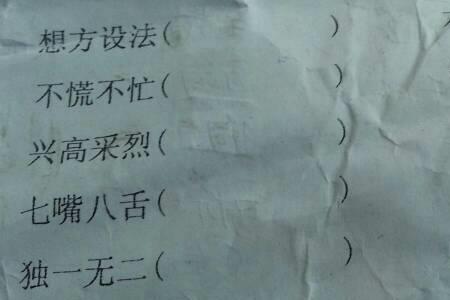 想方设法(　　　　)
不慌不忙(　　　　)
兴高采烈(　　　　)
七嘴八舌(　　　　)
独一无二(　　　　)